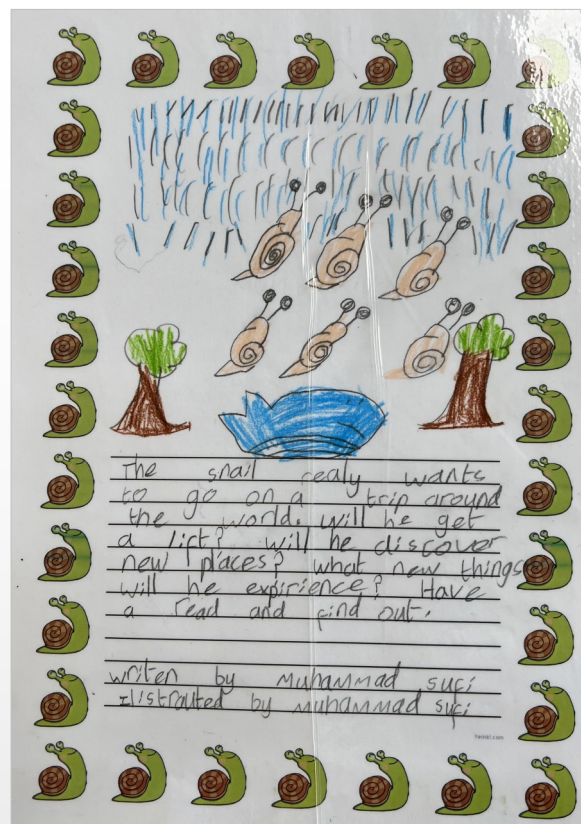 The snail realy wants
to go on a trip around
the world. will he get
a lift? will he discover
new places? what new things
will he expirience? Have
a read and find out.
writen by Muhammad sufi
Ilistrauted by Muhammad sufi